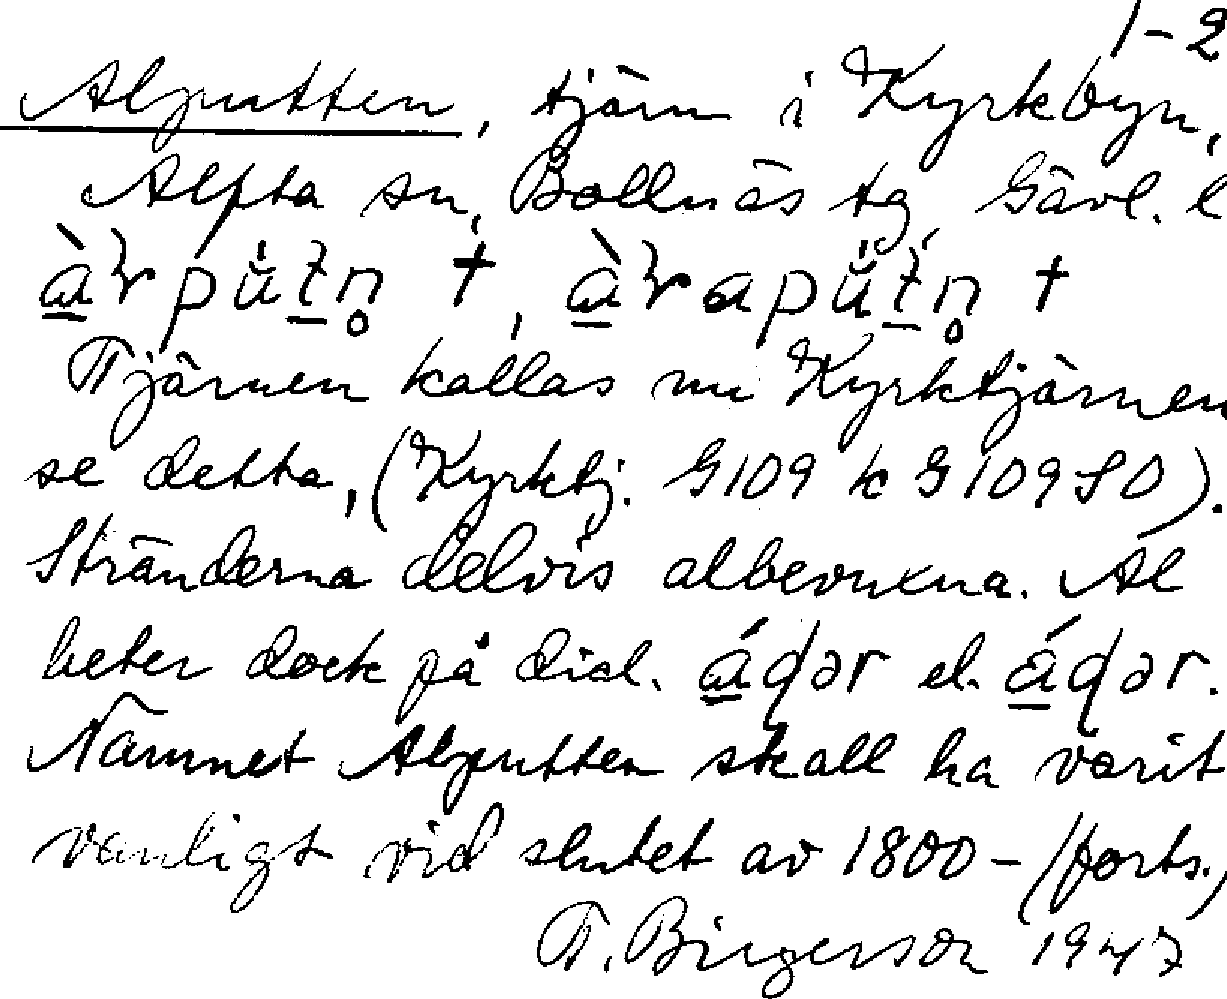 1-2
Alputten, tjärn i Kyrkbyn,
Alfta sn, Bollnäs tg, Gävl. l
Tjärnen kallas nu Kyrktjärnen
se detta, (Kyrktj. G109 k G109 SO).
Stränderna delvis albevuxna. Al
heter dock på dial. el.
Namnet Alputten skall ha varit
vanligt vid slutet av 1800-/forts.,
T. Birgerson 1947